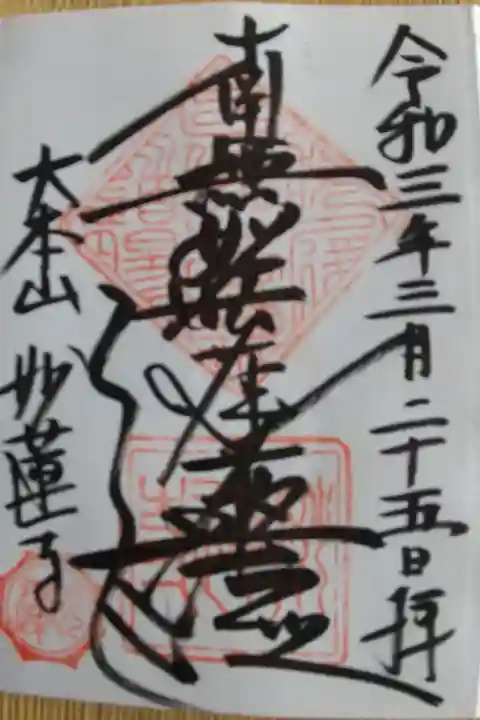 令和三年三月二十五日拝
南無妙法蓮華経
大本山 妙蓮寺